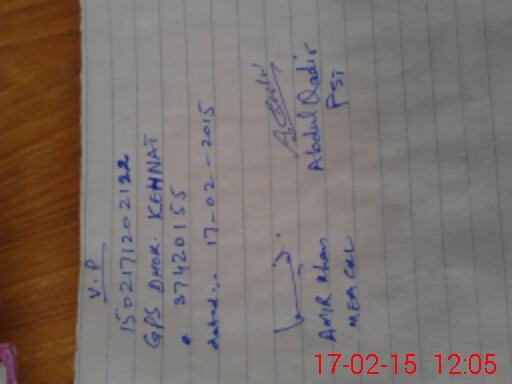 V.P
150217120212
GPS DHOR. KEHNAT
37420155
dated:- 17-02-2015
AMIR Khan
MEA CHL
Abdul Qadir
PST
17-02-15 12:05